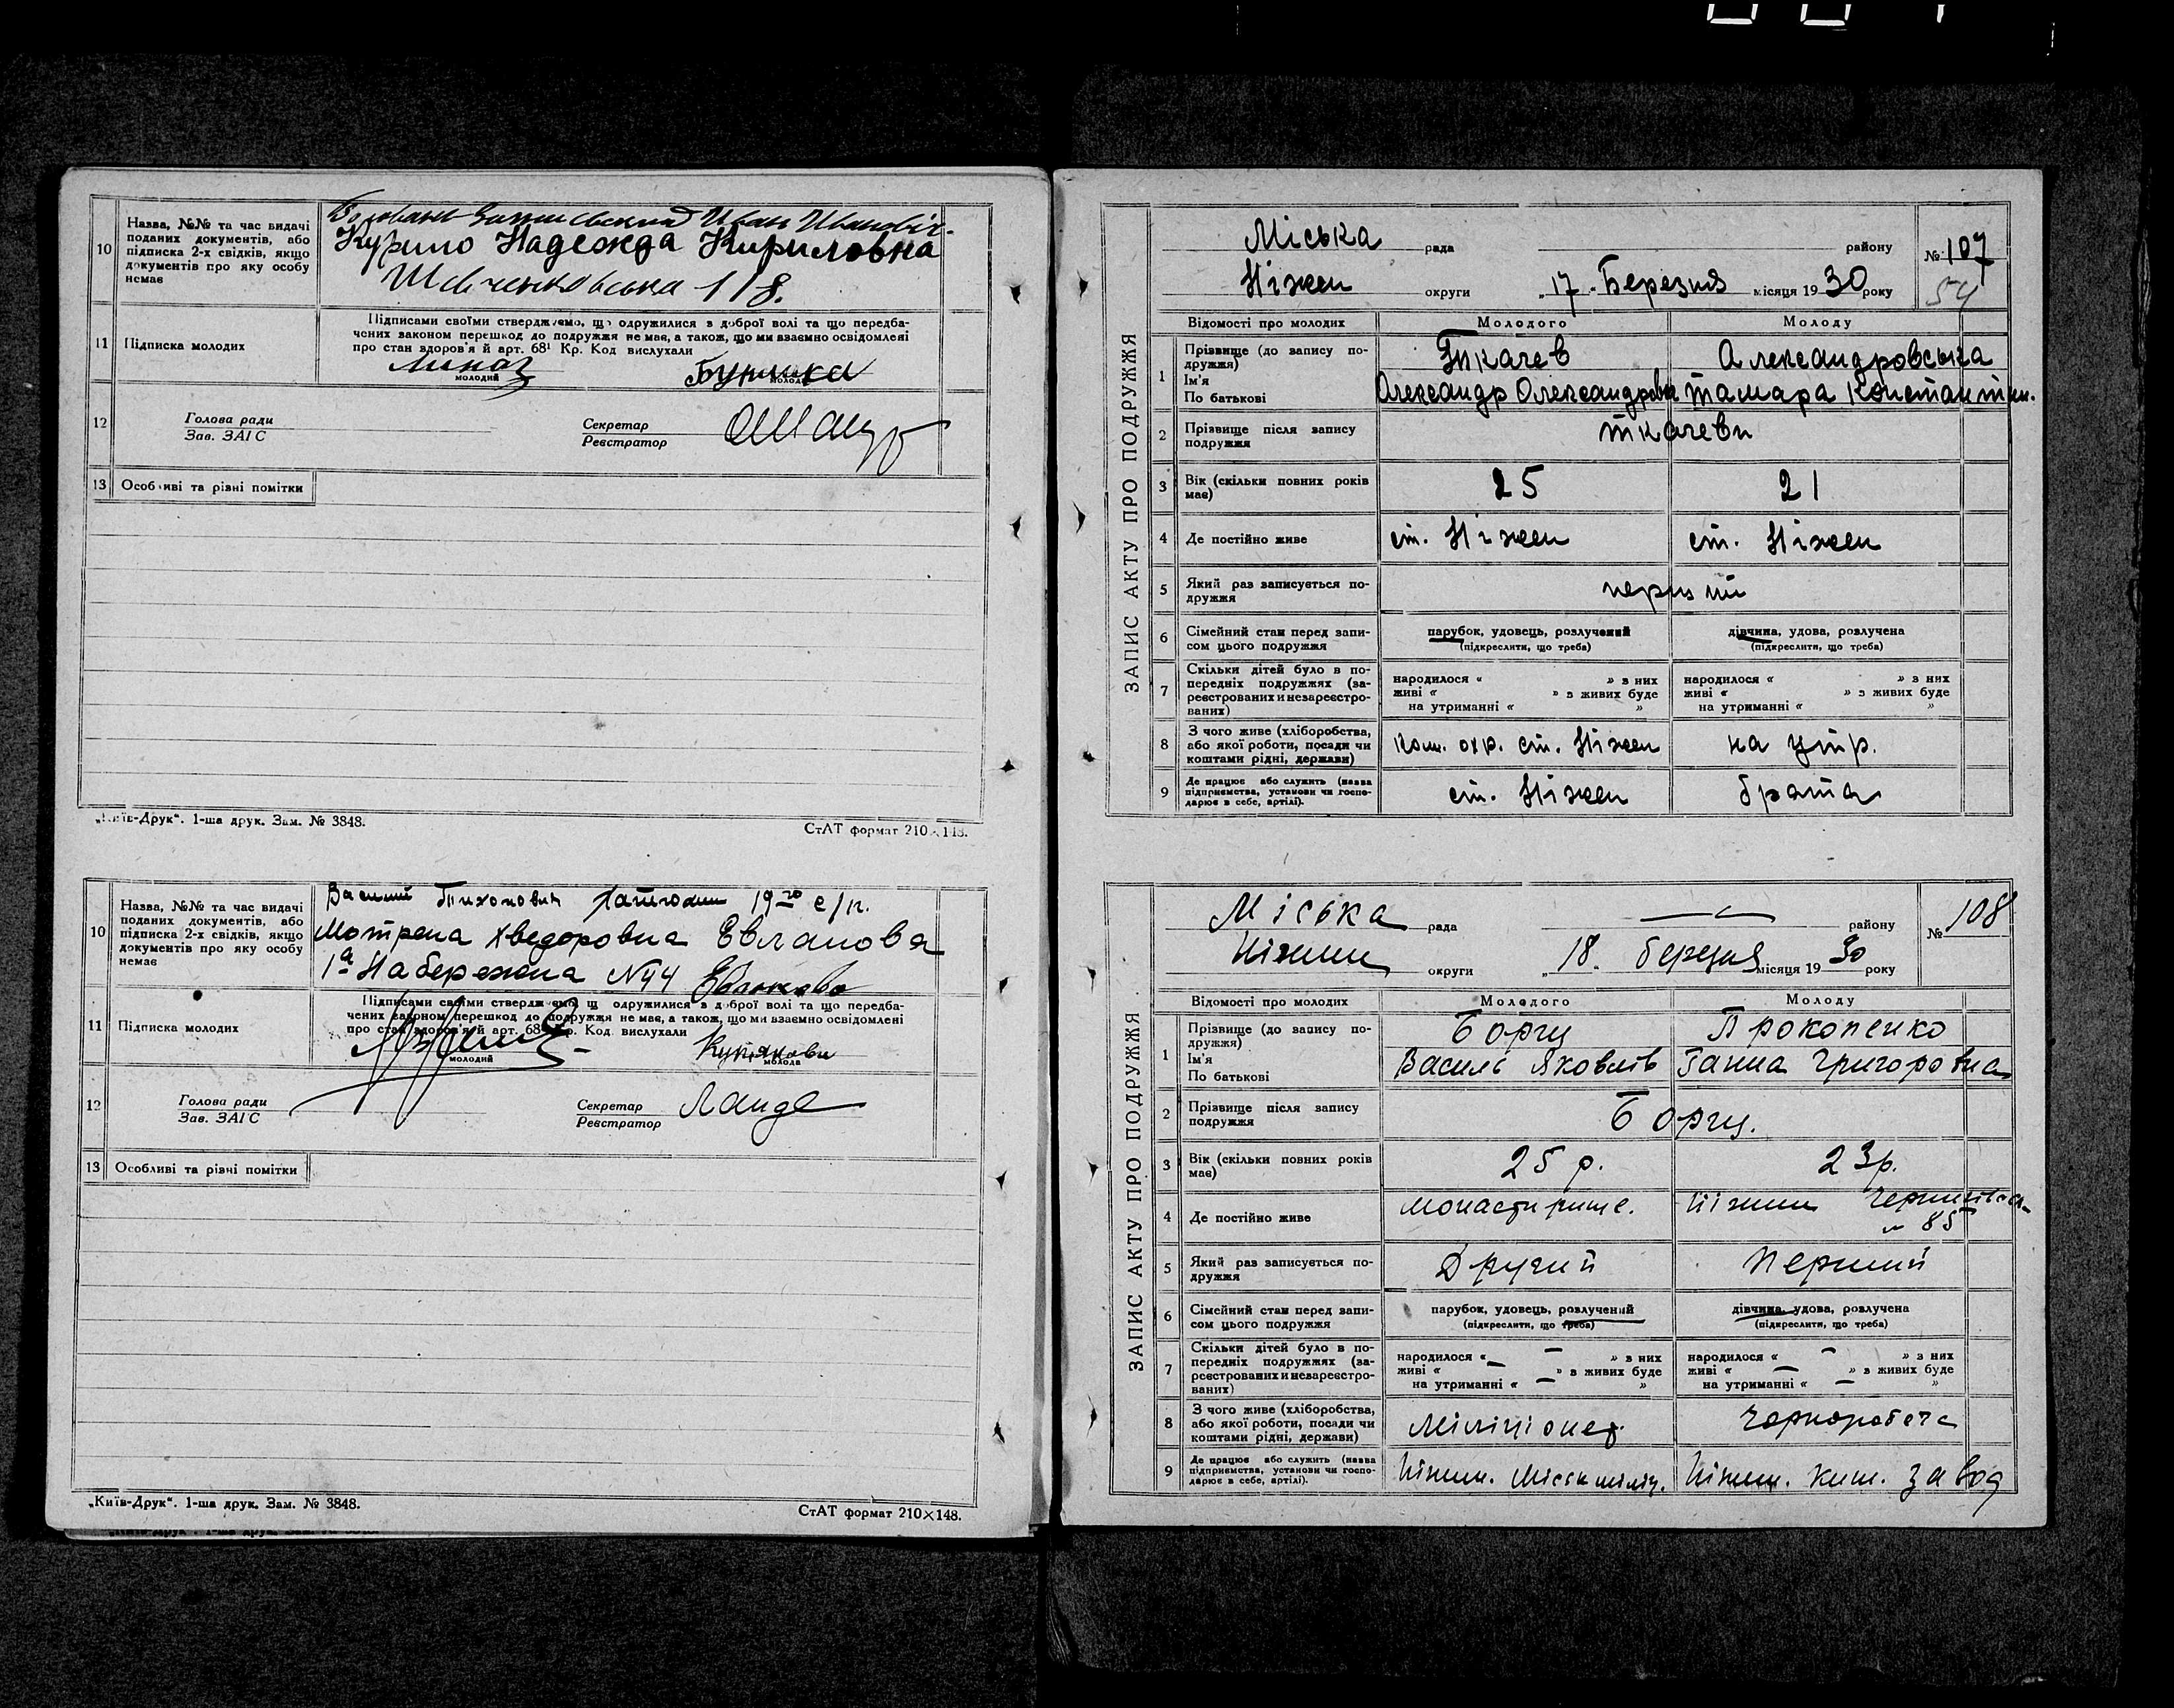 10
Назва, №№ та час видачі
поданих документів, або
підписка 2-х свідків, якщо
документів про яку особу
немає
Иван Иванович
Курило Надежда Кириловна
Шевченковська 118.
11
Підписка молодих
Підписами своїми стверджуємо, що одружилися з доброї волі та що передба-
чених законом перешкод до подружжя немає, а також, що ми взаємно освідомлені
про стан здоров'я й арт. 68¹ Кр. Код вислухали
молодий
молода
12
Голова ради
Зав. ЗАГС
Секретар
Реєстратор
13
Особливі та різні помітки
„Київ-Друк“. 1-ша друк. Зам. № 3848.
СтАТ формат 210×148.
10
Назва, №№ та час видачі
поданих документів, або
підписка 2-х свідків, якщо
документів про яку особу
немає
Василий Тихонович
Мотрена Хведоровна Евланова
1а Набережна N44
11
Підписка молодих
Підписами своїми стверджуємо, що одружилися з доброї волі та що передба-
чених законом перешкод до подружжя немає, а також, що ми взаємно освідомлені
про стан здоров'я й арт. 68¹ Кр. Код вислухали
молодий
молода
12
Голова ради
Зав. ЗАГС
Секретар
Реєстратор
Ланде
13
Особливі та різні помітки
„Київ-Друк“. 1-ша друк. Зам. № 3848.
СтАТ формат 210×148.
ЗАПИС АКТУ ПРО ПОДРУЖЖЯ
Міська рада району № 107
Ніжен округи „17 Березня місяця 1930 року
54
Відомості про молодих Молодого Молоду
1
Прізвище (до запису по-
дружжя)
Ім'я
По батькові
Ткачев Александровська
Олександр Олександрович Тамара Константин.
2
Прізвище після запису
подружжя
Ткачеви
3
Вік (скільки повних років
має)
25 21
4
Де постійно живе
ст. Ніжен ст. Ніжен
5
Який раз записується по-
дружжя
перший
6
Сімейний стан перед запи-
сом цього подружжя
парубок, удовець, розлучений дівчина, удова, розлучена
(підкреслити, що треба) (підкреслити, що треба)
7
Скільки дітей було в по-
передніх подружжях (за-
реєстрованих и незареєстро-
ваних)
народилося « » з них народилося « » з них
живі « » з живих буде живі « » з живих буде
на утриманні « » на утриманні « »
8
З чого живе (хліборобства,
або якої роботи, посади чи
коштами рідні, держави)
ком. охр. ст. Ніжен на утр.
9
Де працює або служить (назва
підприємства, установи чи госпо-
дарює в себе, артілі).
ст. Ніжен брата
ЗАПИС АКТУ ПРО ПОДРУЖЖЯ
Міська рада — району № 108
Ніжин округи „18. березня місяця 1930 року
Відомості про молодих Молодого Молоду
1
Прізвище (до запису по-
дружжя)
Ім'я
По батькові
Борщ Прокопенко
Василь Яковлів Ганна Григоровна
2
Прізвище після запису
подружжя
Борщ.
3
Вік (скільки повних років
має)
25 р. 23 р.
4
Де постійно живе
Монастирище. Ніжин Чернигівск.
№ 85
5
Який раз записується по-
дружжя
Другий Перший
6
Сімейний стан перед запи-
сом цього подружжя
парубок, удовець, розлучений дівчина, удова, розлучена
(підкреслити, що треба) (підкреслити, що треба)
7
Скільки дітей було в по-
передніх подружжях (за-
реєстрованих и незареєстро-
ваних)
народилося « — » з них народилося « — » з них
живі « — » з живих буде живі « — » з живих буде
на утриманні « — » на утриманні « — »
8
З чого живе (хліборобства,
або якої роботи, посади чи
коштами рідні, держави)
Міліціонер. Чорноробоча
9
Де працює або служить (назва
підприємства, установи чи госпо-
дарює в себе, артілі).
Ніжин. Міськміліц. Ніжин. завод